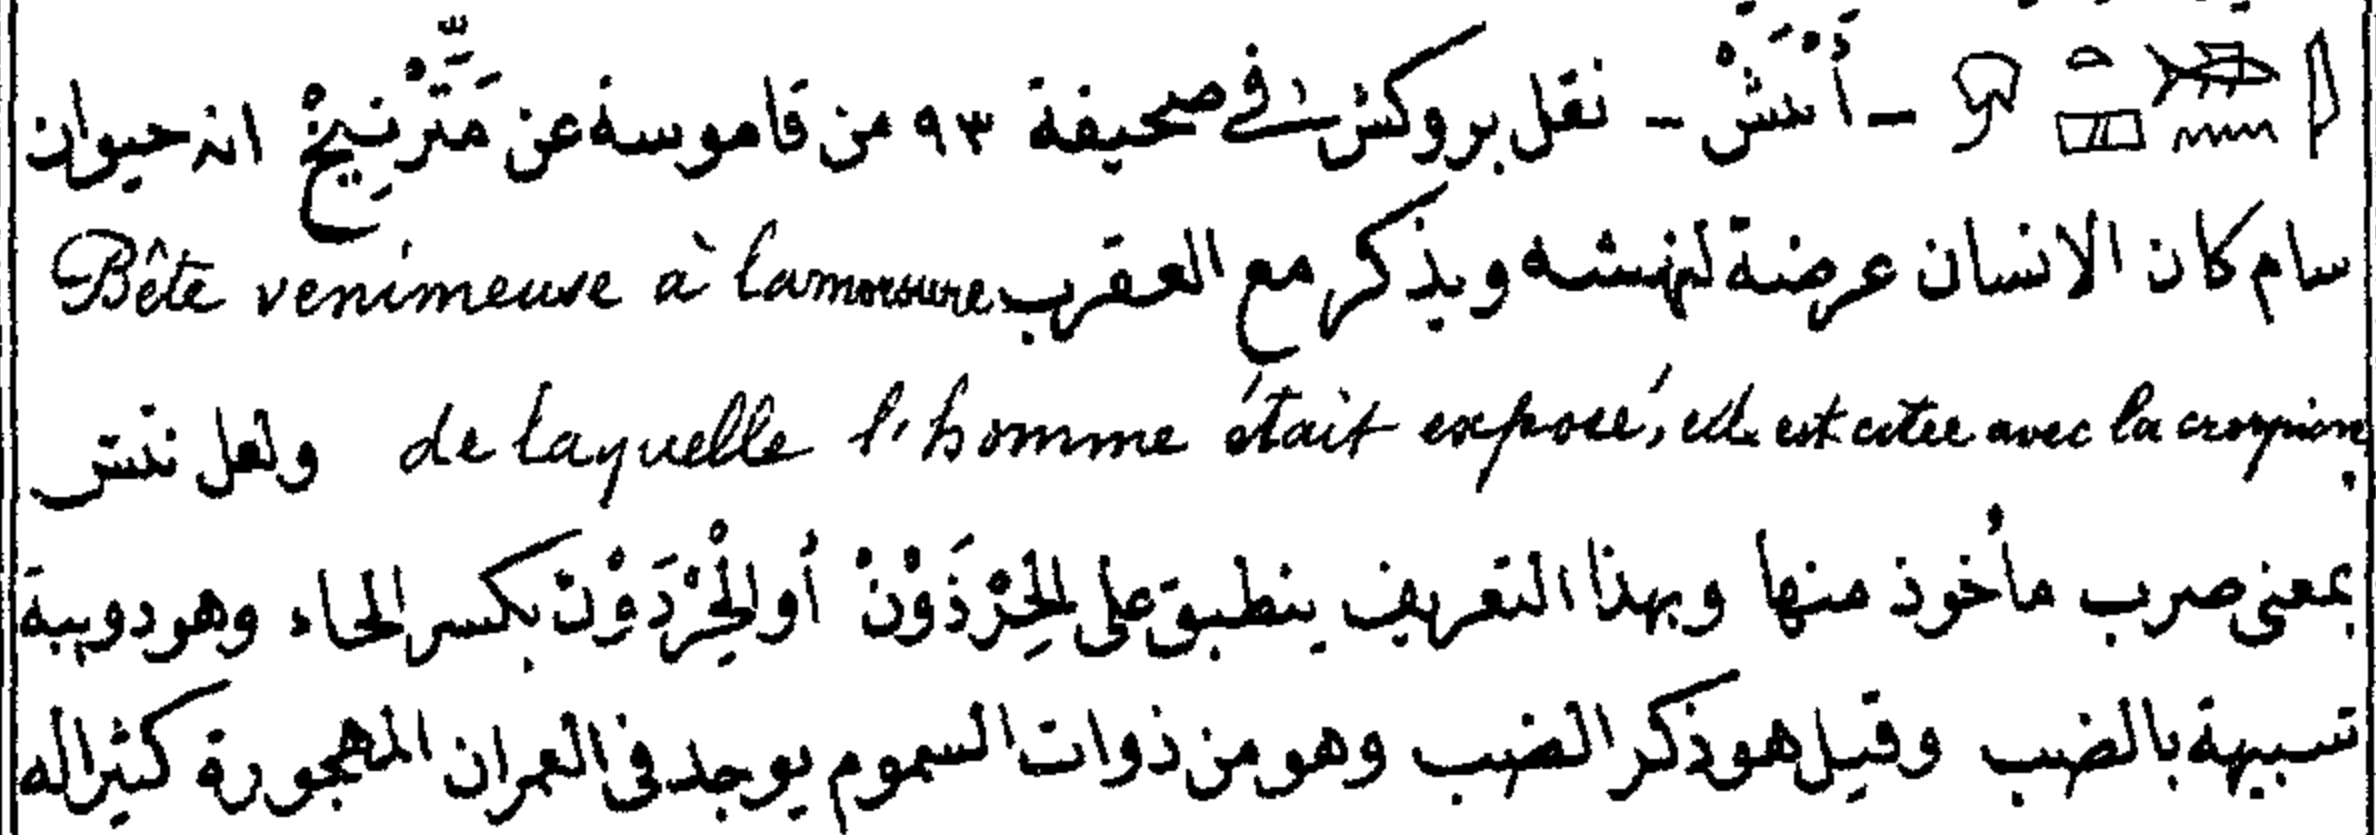 - أَنْتَشْ - نقل بروكش فى صحيفة ٩٣ من قاموسة عن مَتَّرْنِيخْ انه حيوان
سام كان الانسان عرضة لنهشه ويذكر مع العقرب Bête venimeuse à la morsure
de laquelle l'homme était exposé, elle est citée avec la scorpion ولعل نتش
بمعنى ضرب مأخوذ منها وبهذا التعريف ينطبق على الحِرْذَوْنْ أو الحِرْدَوْنْ بكسر الحاء وهو دويبة
شبيهة بالضب وقيل هو ذكر الضب وهو من ذوات السموم يوجد فى العمران المهجورة كثيرا له